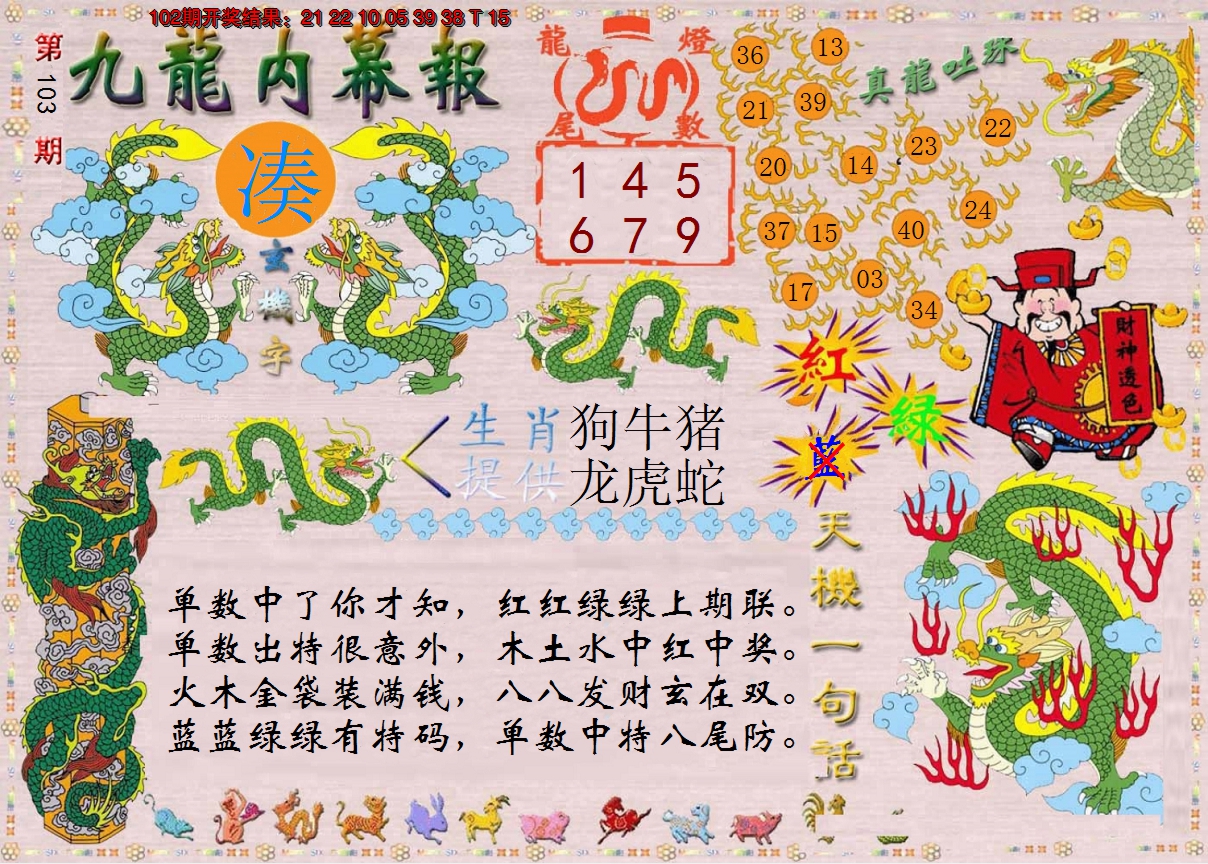 102期开奖结果：21 22 10.05 39 38 T 15
第103期
九龍内幕報
龍燈
尾數
1 4 5
6 7 9
凑
玄機字
真龍吐珠
36
13
21
39
23
22
20
14
24
37
15
40
17
03
34
紅
绿
蓝
財神透色
生肖提供
狗牛猪
龙虎蛇
天機一句話
单数中了你才知，红红绿绿上期联。
单数出特很意外，木土水中红中奖。
火木金袋装满钱，八八发财玄在双。
蓝蓝绿绿有特码，单数中特八尾防。